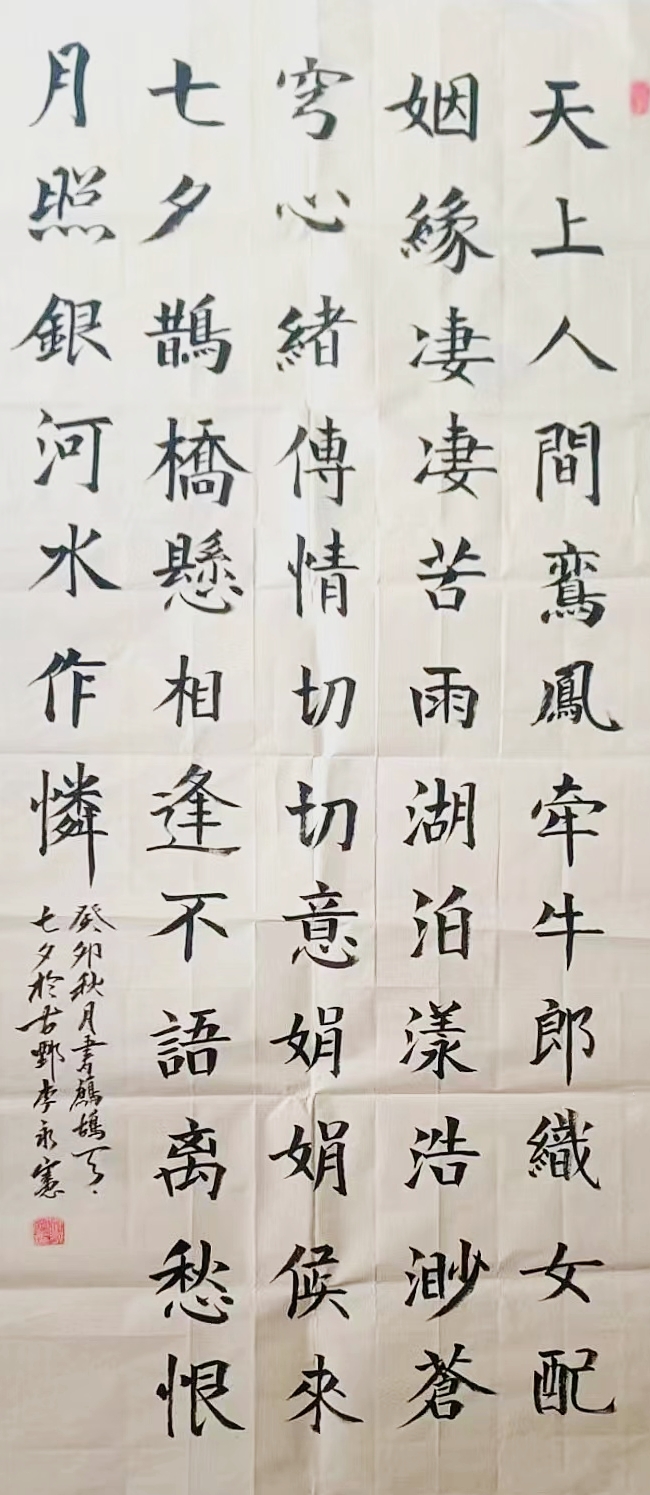 天上人間鸞鳳牽牛郎織女配
姻緣凄凄苦雨湖泊漾浩渺蒼
穹心緒傳情切切意娟娟候來
七夕鵲橋懸相逢不語离愁恨
月照銀河水作憐
癸卯秋月書鷓鴣天
七夕於古鄄李永憲